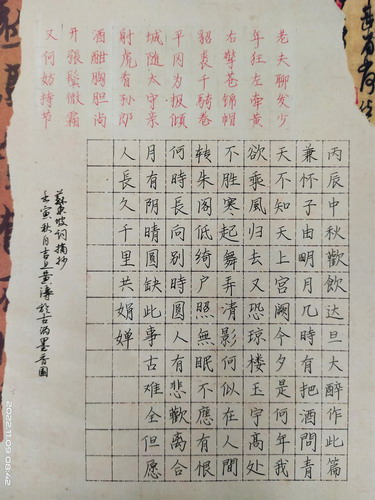 老夫聊发少
年狂左牵黄
右擎苍锦帽
貂裘千骑卷
平冈为报倾
城随太守亲
射虎看孙郎
酒酣胸胆尚
开張鬓微霜
又何妨持节
丙辰中秋歡飲达旦大醉作此篇
兼怀子由明月几時有把酒問青
天不知天上宮阙今夕是何年我
欲乘風归去又恐琼楼玉宇高处
不胜寒起舞弄清影何似在人間
转朱阁低绮户照無眠不應有恨
何時長向别時圆人有悲歡离合
月有阴晴圆缺此事古难全但愿
人長久千里共娟婵
蘇東坡词摘抄
壬寅秋月吉旦黄涛於古滴墨香園
2022.11.09 08:42